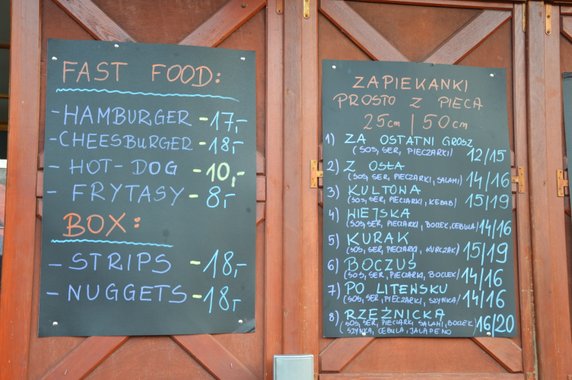 FAST FOOD:
- HAMBURGER - 17,-
- CHEESBURGER - 18,-
- HOT-DOG - 10,-
- FRYTASY - 8,-
BOX:
- STRIPS - 18,-
- NUGGETS - 18,-
ZAPIEKANKI
PROSTO Z PIECA
25cm | 50cm
1) ZA OSTATNI GROSZ
(SOS, SER, PIECZARKI) 12/15
2) Z OSŁA
(SOS, SER, PIECZARKI, SALAMI) 14/16
3) KULTOWA
(SOS, SER, PIECZARKI, KEBAB) 15/19
4) WIEJSKA
(SOS, SER, PIECZARKI, BOCZEK, CEBULA) 14/16
5) KURAK
(SOS, SER, PIECZARKI, KURCZAK) 15/19
6) BOCZUŚ
(SOS, SER, PIECZARKI, BOCZEK) 14/16
7) PO LITEŃSKU
(SOS, SER, PIECZARKI, SZYNKA) 14/16
8) RZEŹNICKA
(SOS, SER, PIECZARKI, SALAMI, BOCZEK 16/20
SZYNKA, CEBULA, JALAPENO